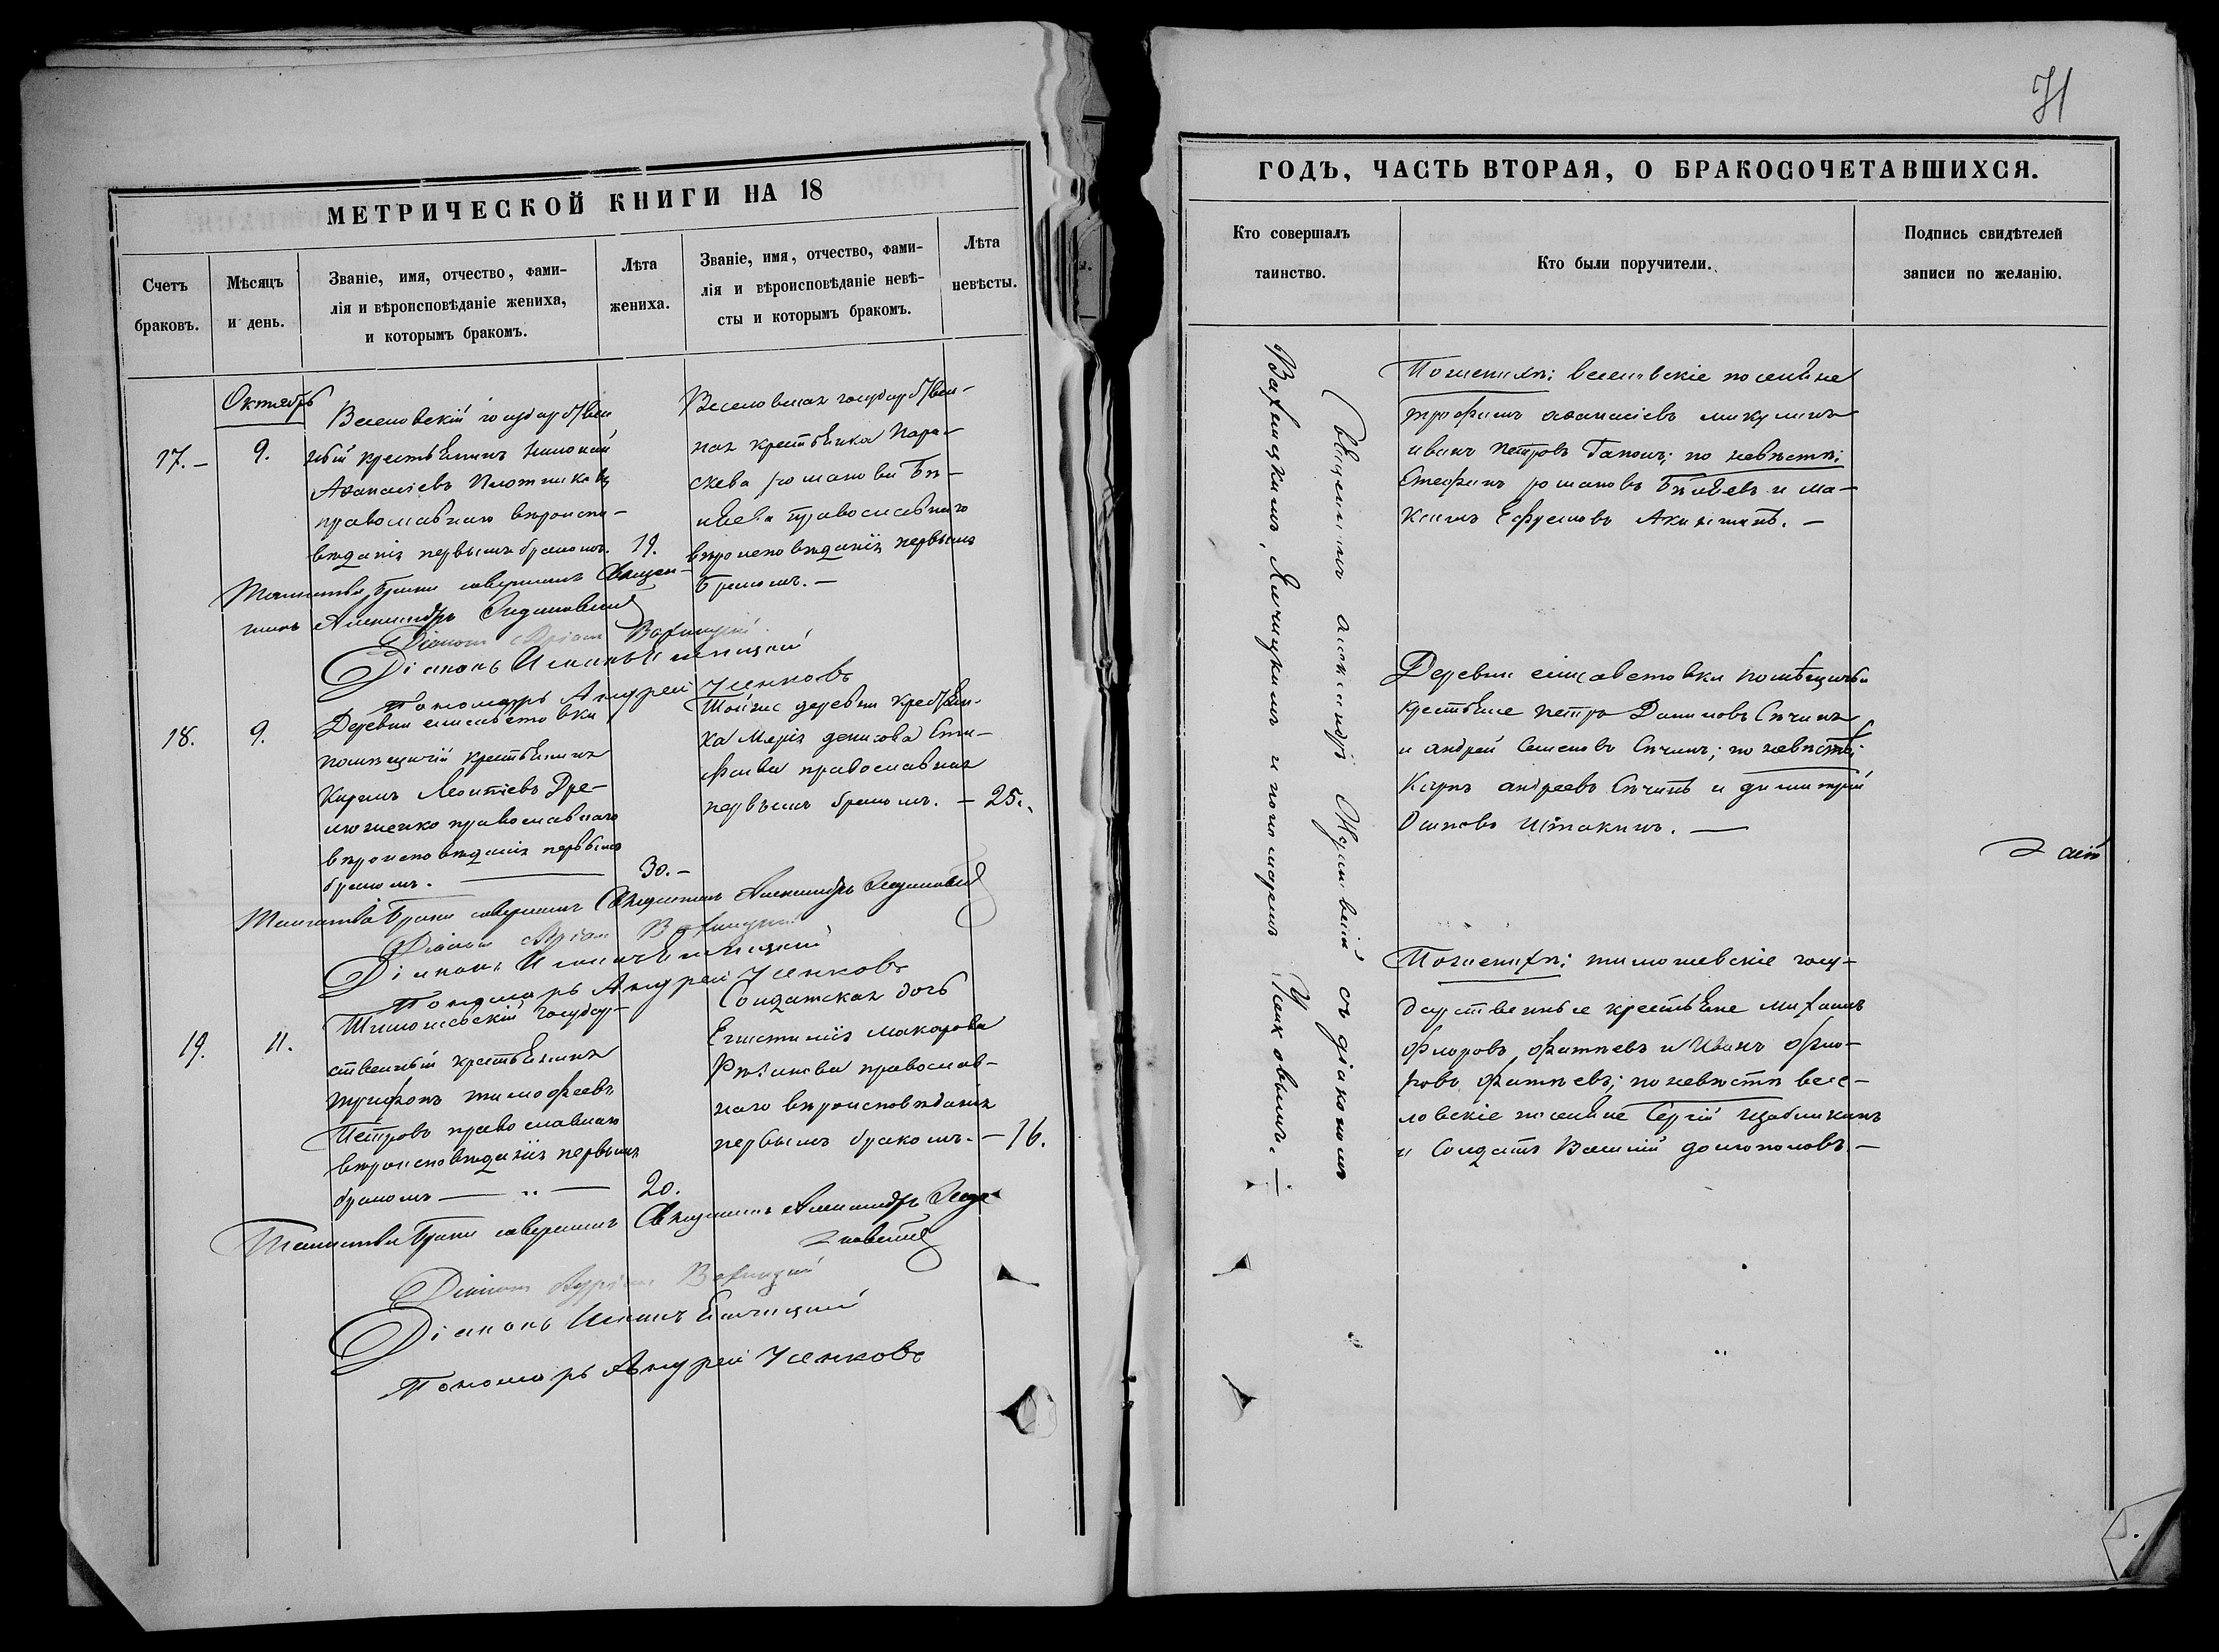 МЕТРИЧЕСКОЙ КНИГИ НА 18
Счетъ
браковъ.
Мѣсяцъ
и день.
Званіе, имя, отчество, фами-
лія и вѣроисповѣданіе жениха,
и которымъ бракомъ.
Лѣта
жениха.
Званіе, имя, отчество, фами-
лія и вѣроисповѣданіе невѣ-
сты и которымъ бракомъ.
Лѣта
невѣсты.
Октябрь
17.–
9.
Веселовскій государствен
ный крестьянинъ
Аѳанасіевъ Плотниковъ
православнаго вѣроиспо-
вѣданія первымъ бракомъ.
19.
Веселовская государствен-
ная крестьянка Пара-
скева романова Бѣ-
ляева православнаго
вѣроисповѣданія первымъ
бракомъ. –
Таинство брака совершилъ Священ-
никъ Александръ
Діаконъ
Діаконъ
Пономарь Андрей Усенковъ
18.
9.
Деревни елисаветовки
помѣщичій крестьянинъ
Карпъ Леонтіевъ Дре-
люченко православнаго
вѣроисповѣданія первымъ
бракомъ. —
30.–
Тойже деревни крестьян-
ка Марія денисова Епи-
фанова православная
первымъ бракомъ. –
25.
Таинство брака совершилъ Священникъ Александръ
Діаконъ
Діаконъ
Пономарь Андрей Усенковъ
19.
11.
Тимошевскій государ-
ственный крестьянинъ
трифонъ тимофеевъ
Петровъ православнаго
вѣроисповѣданія первымъ
бракомъ — „ —
20.
Солдатская дочь
Евгистимія макарова
православ-
наго вѣроисповѣданія
первымъ бракомъ. –
16.
Таинство брака совершилъ Священникъ Александръ
Діаконъ
Діаконъ
Пономарь Андрей Усенковъ
71
ГОДЪ, ЧАСТЬ ВТОРАЯ, О БРАКОСОЧЕТАВШИХСЯ.
Кто совершалъ
таинство.
Кто были поручители.
Подпись свидѣтелей
записи по желанію.
Священникъ александръ съ діакономъ
и пономаремъ Усенковымъ. –
По женихѣ: веселовскіе поселяне
трофимъ аѳанасіевъ микулинъ
иванъ петровъ Гапонъ; по невѣстѣ:
Стефанъ романовъ Бѣляевъ и ма-
ксимъ Ефремовъ –
Деревни елисаветовки помѣщичьи
крестьяне петръ Даниловъ Сѣчинъ
и андрей Семеновъ Сѣчинъ; по невѣстѣ:
Карпъ андреевъ Сѣчинъ и димитрій
—
По женихѣ: тимошевскіе госу-
дарственные крестьяне михаилъ
флоровъ фатѣевъ и Иванъ фло-
ровъ фатѣевъ; по невѣстѣ весе-
ловскіе поселяне Сергій
и Солдатъ Василій долгополовъ. –